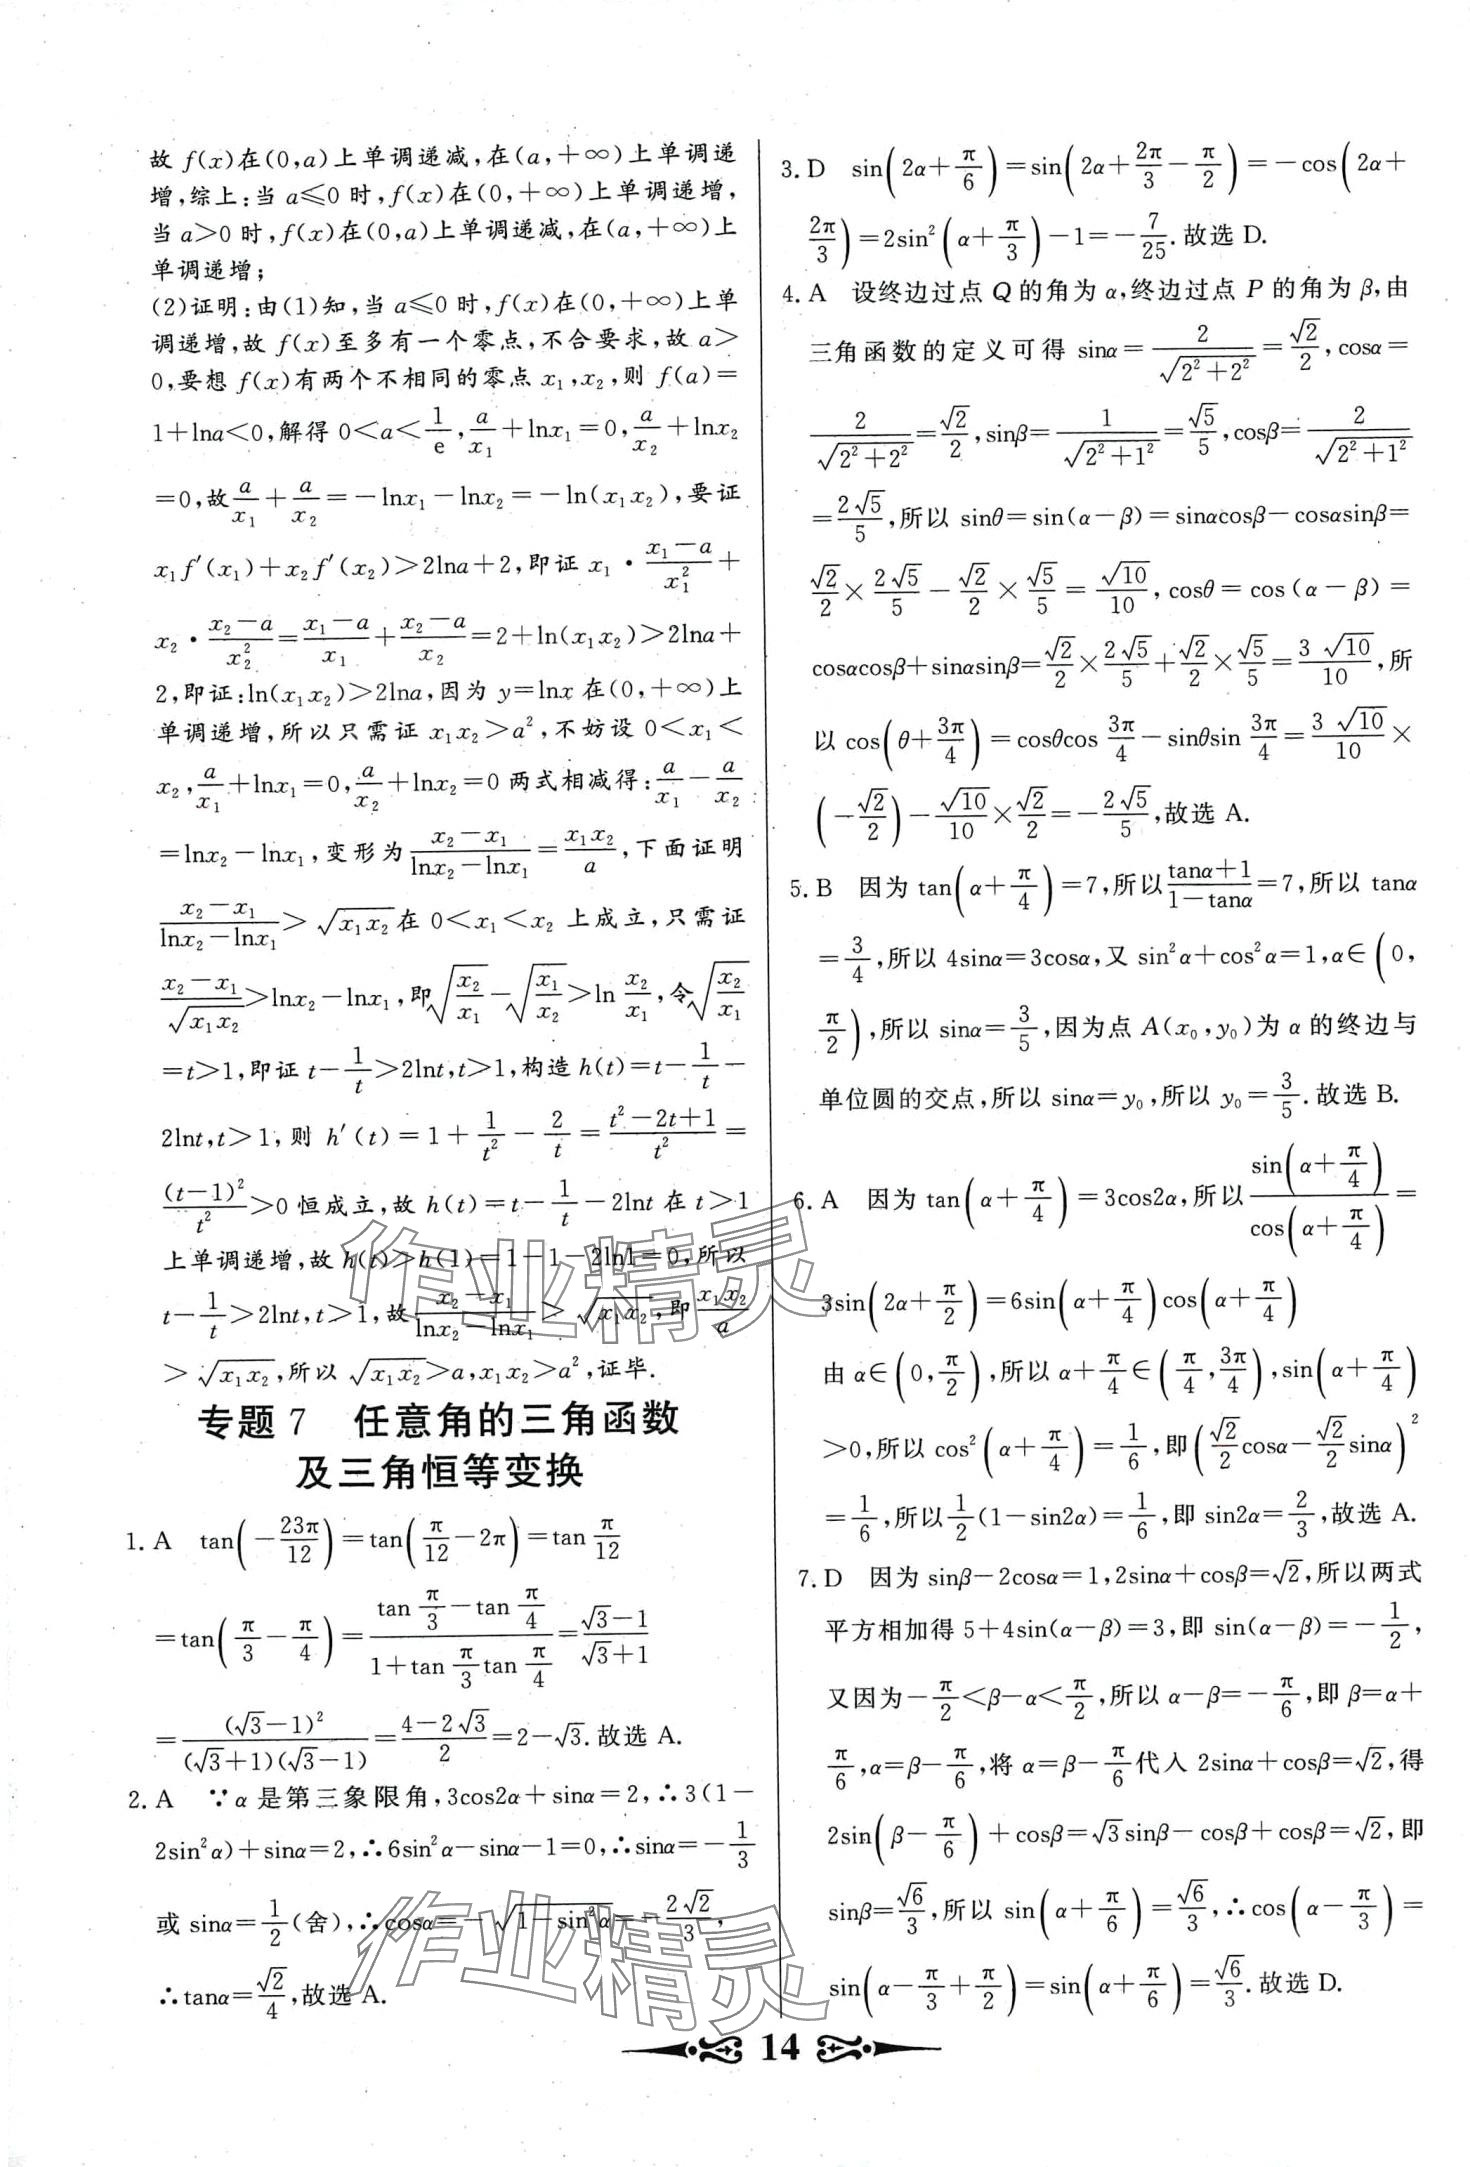 故 f(x)在(0,a)上单调递减,在(a,+∞)上单调递
增,综上:当 a≤0 时,f(x)在(0,+∞)上单调递增,
当 a>0 时,f(x)在(0,a)上单调递减,在(a,+∞)上
单调递增;
(2)证明:由(1)知,当 a≤0 时,f(x)在(0,+∞)上单
调递增,故 f(x)至多有一个零点,不合要求,故 a>
0,要想 f(x)有两个不相同的零点 x₁,x₂,则 f(a)=
1+lna<0,解得 0<a<1/e,a/x₁+lnx₁=0,a/x₂+lnx₂
=0,故a/x₁+a/x₂=-lnx₁-lnx₂=-ln(x₁x₂),要证
x₁f′(x₁)+x₂f′(x₂)>2lna+2,即证 x₁·(x₁-a)/x₁²+
x₂·(x₂-a)/x₂²=(x₁-a)/x₁+(x₂-a)/x₂=2+ln(x₁x₂)>2lna+
2,即证:ln(x₁x₂)>2lna,因为 y=lnx 在(0,+∞)上
单调递增,所以只需证 x₁x₂>a²,不妨设 0<x₁<
x₂,a/x₁+lnx₁=0,a/x₂+lnx₂=0 两式相减得:a/x₁-a/x₂
=lnx₂-lnx₁,变形为(x₂-x₁)/(lnx₂-lnx₁)=x₁x₂/a,下面证明
(x₂-x₁)/(lnx₂-lnx₁)>√(x₁x₂)在 0<x₁<x₂ 上成立,只需证
(x₂-x₁)/√(x₁x₂)>lnx₂-lnx₁,即√(x₂/x₁)-√(x₁/x₂)>ln x₂/x₁,令√(x₂/x₁)
=t>1,即证 t-1/t>2lnt,t>1,构造 h(t)=t-1/t-
2lnt,t>1,则 h′(t)=1+1/t²-2/t=(t²-2t+1)/t²=
(t-1)²/t²>0 恒成立,故 h(t)=t-1/t-2lnt 在 t>1
上单调递增,故 h(t)>h(1)=1-1-2ln1=0,所以
t-1/t>2lnt,t>1,故(x₂-x₁)/(lnx₂-lnx₁)>√(x₁x₂),即x₁x₂/a
>√(x₁x₂),所以 √(x₁x₂)>a,x₁x₂>a²,证毕.
专题 7 任意角的三角函数
及三角恒等变换
1. A tan(-23π/12)=tan(π/12-2π)=tan π/12
=tan(π/3-π/4)=(tan π/3-tan π/4)/(1+tan π/3 tan π/4)=(√3-1)/(√3+1)
=(√3-1)²/((√3+1)(√3-1))=(4-2√3)/2=2-√3.故选 A.
2. A ∵α 是第三象限角,3cos2α+sinα=2,∴3(1-
2sin²α)+sinα=2,∴6sin²α-sinα-1=0,∴sinα=-1/3
或 sinα=1/2(舍),∴cosα=-√(1-sin²α)=-2√2/3,
∴tanα=√2/4,故选 A.
3. D sin(2α+π/6)=sin(2α+2π/3-π/2)=-cos(2α+
2π/3)=2sin²(α+π/3)-1=-7/25.故选 D.
4. A 设终边过点 Q 的角为 α,终边过点 P 的角为 β,由
三角函数的定义可得 sinα=2/√(2²+2²)=√2/2,cosα=
2/√(2²+2²)=√2/2,sinβ=1/√(2²+1²)=√5/5,cosβ=2/√(2²+1²)
=2√5/5,所以 sinθ=sin(α-β)=sinαcosβ-cosαsinβ=
√2/2×2√5/5-√2/2×√5/5=√10/10,cosθ=cos(α-β)=
cosαcosβ+sinαsinβ=√2/2×2√5/5+√2/2×√5/5=3√10/10,所
以 cos(θ+3π/4)=cosθcos 3π/4-sinθsin 3π/4=3√10/10×
(-√2/2)-√10/10×√2/2=-2√5/5,故选 A.
5. B 因为 tan(α+π/4)=7,所以(tanα+1)/(1-tanα)=7,所以 tanα
=3/4,所以 4sinα=3cosα,又 sin²α+cos²α=1,α∈(0,
π/2),所以 sinα=3/5,因为点 A(x₀,y₀)为 α 的终边与
单位圆的交点,所以 sinα=y₀,所以 y₀=3/5.故选 B.
6. A 因为 tan(α+π/4)=3cos2α,所以sin(α+π/4)/cos(α+π/4)=
3sin(2α+π/2)=6sin(α+π/4)cos(α+π/4)
由 α∈(0,π/2),所以 α+π/4∈(π/4,3π/4),sin(α+π/4)
>0,所以 cos²(α+π/4)=1/6,即(√2/2cosα-√2/2sinα)²
=1/6,所以1/2(1-sin2α)=1/6,即 sin2α=2/3,故选 A.
7. D 因为 sinβ-2cosα=1,2sinα+cosβ=√2,所以两式
平方相加得 5+4sin(α-β)=3,即 sin(α-β)=-1/2,
又因为-π/2<β-α<π/2,所以 α-β=-π/6,即 β=α+
π/6,α=β-π/6,将 α=β-π/6代入 2sinα+cosβ=√2,得
2sin(β-π/6)+cosβ=√3sinβ-cosβ+cosβ=√2,即
sinβ=√6/3,所以 sin(α+π/6)=√6/3,∴cos(α-π/3)=
sin(α-π/3+π/2)=sin(α+π/6)=√6/3.故选 D.
14
作业精灵
作业精灵